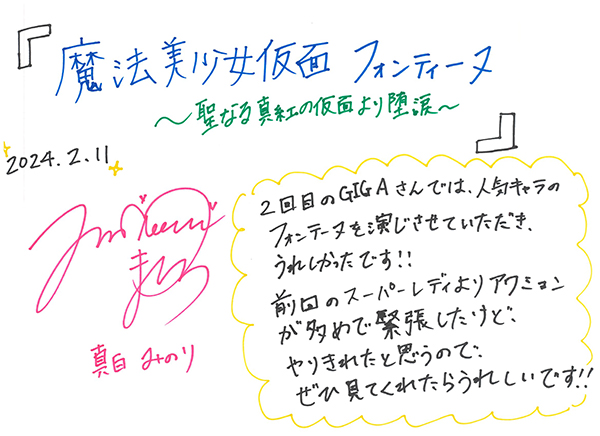 『魔法美少女仮面 フォンティーヌ
～聖なる真紅の仮面より堕涙～
』
2024.2.11
ましろ
真白 みのり
2回目のGIGAさんでは、人気キャラの
フォンテーヌを演じさせていただき、
うれしかったです!!
前回のスーパーレディよりアクション
が多めで緊張したけど、
やりきれたと思うので、
ぜひ見てくれたらうれしいです!!